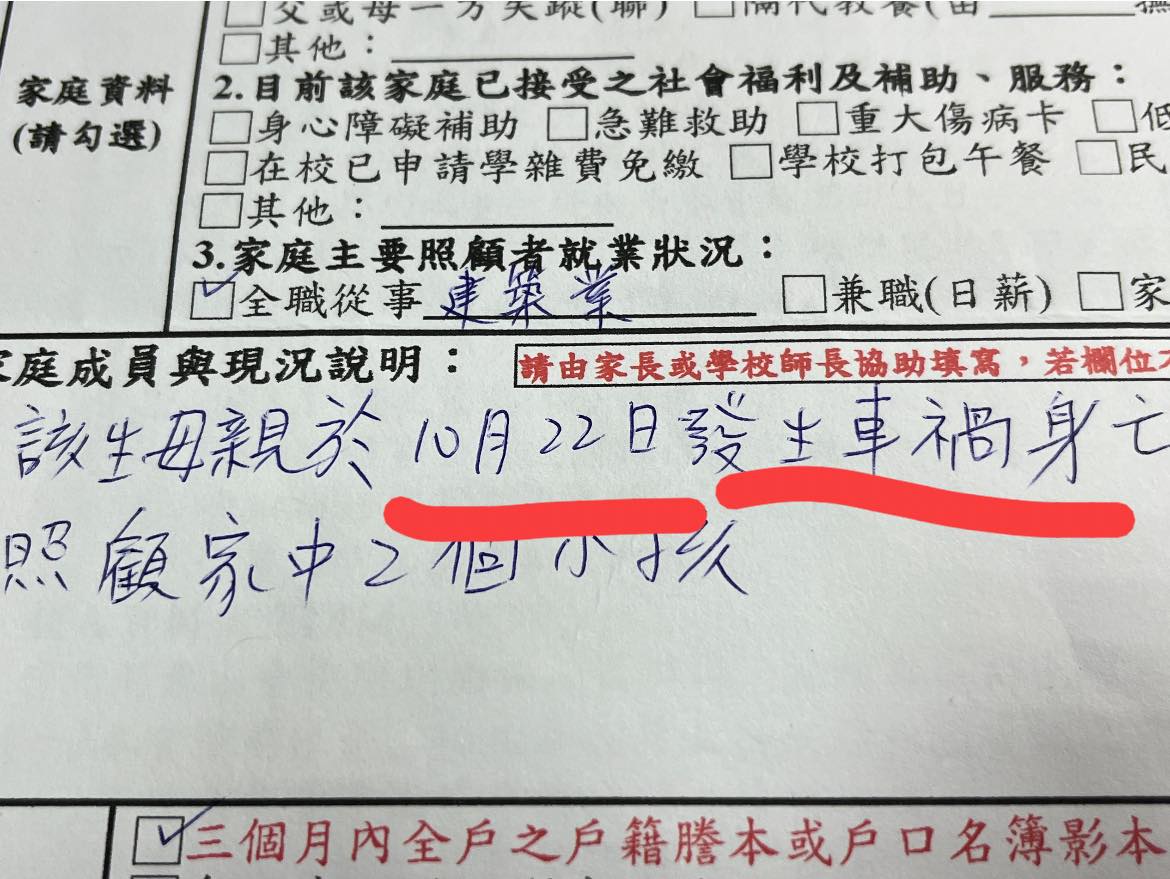 父或母一方失蹤(聯) □隔代教養(由
□其他：
家庭資料
(請勾選)
2.目前該家庭已接受之社會福利及補助、服務：
□身心障礙補助 □急難救助 □重大傷病卡 □低
□在校已申請學雜費免繳 □學校打包午餐 □民
□其他：
3.家庭主要照顧者就業狀況：
☑全職從事建築業 □兼職(日薪) □家
家庭成員與現況說明：
請由家長或學校師長協助填寫，若欄位不
該生母親於10月22日發生車禍身亡
照顧家中2個小孩
☑三個月內全戶之戶籍謄本或戶口名簿影本